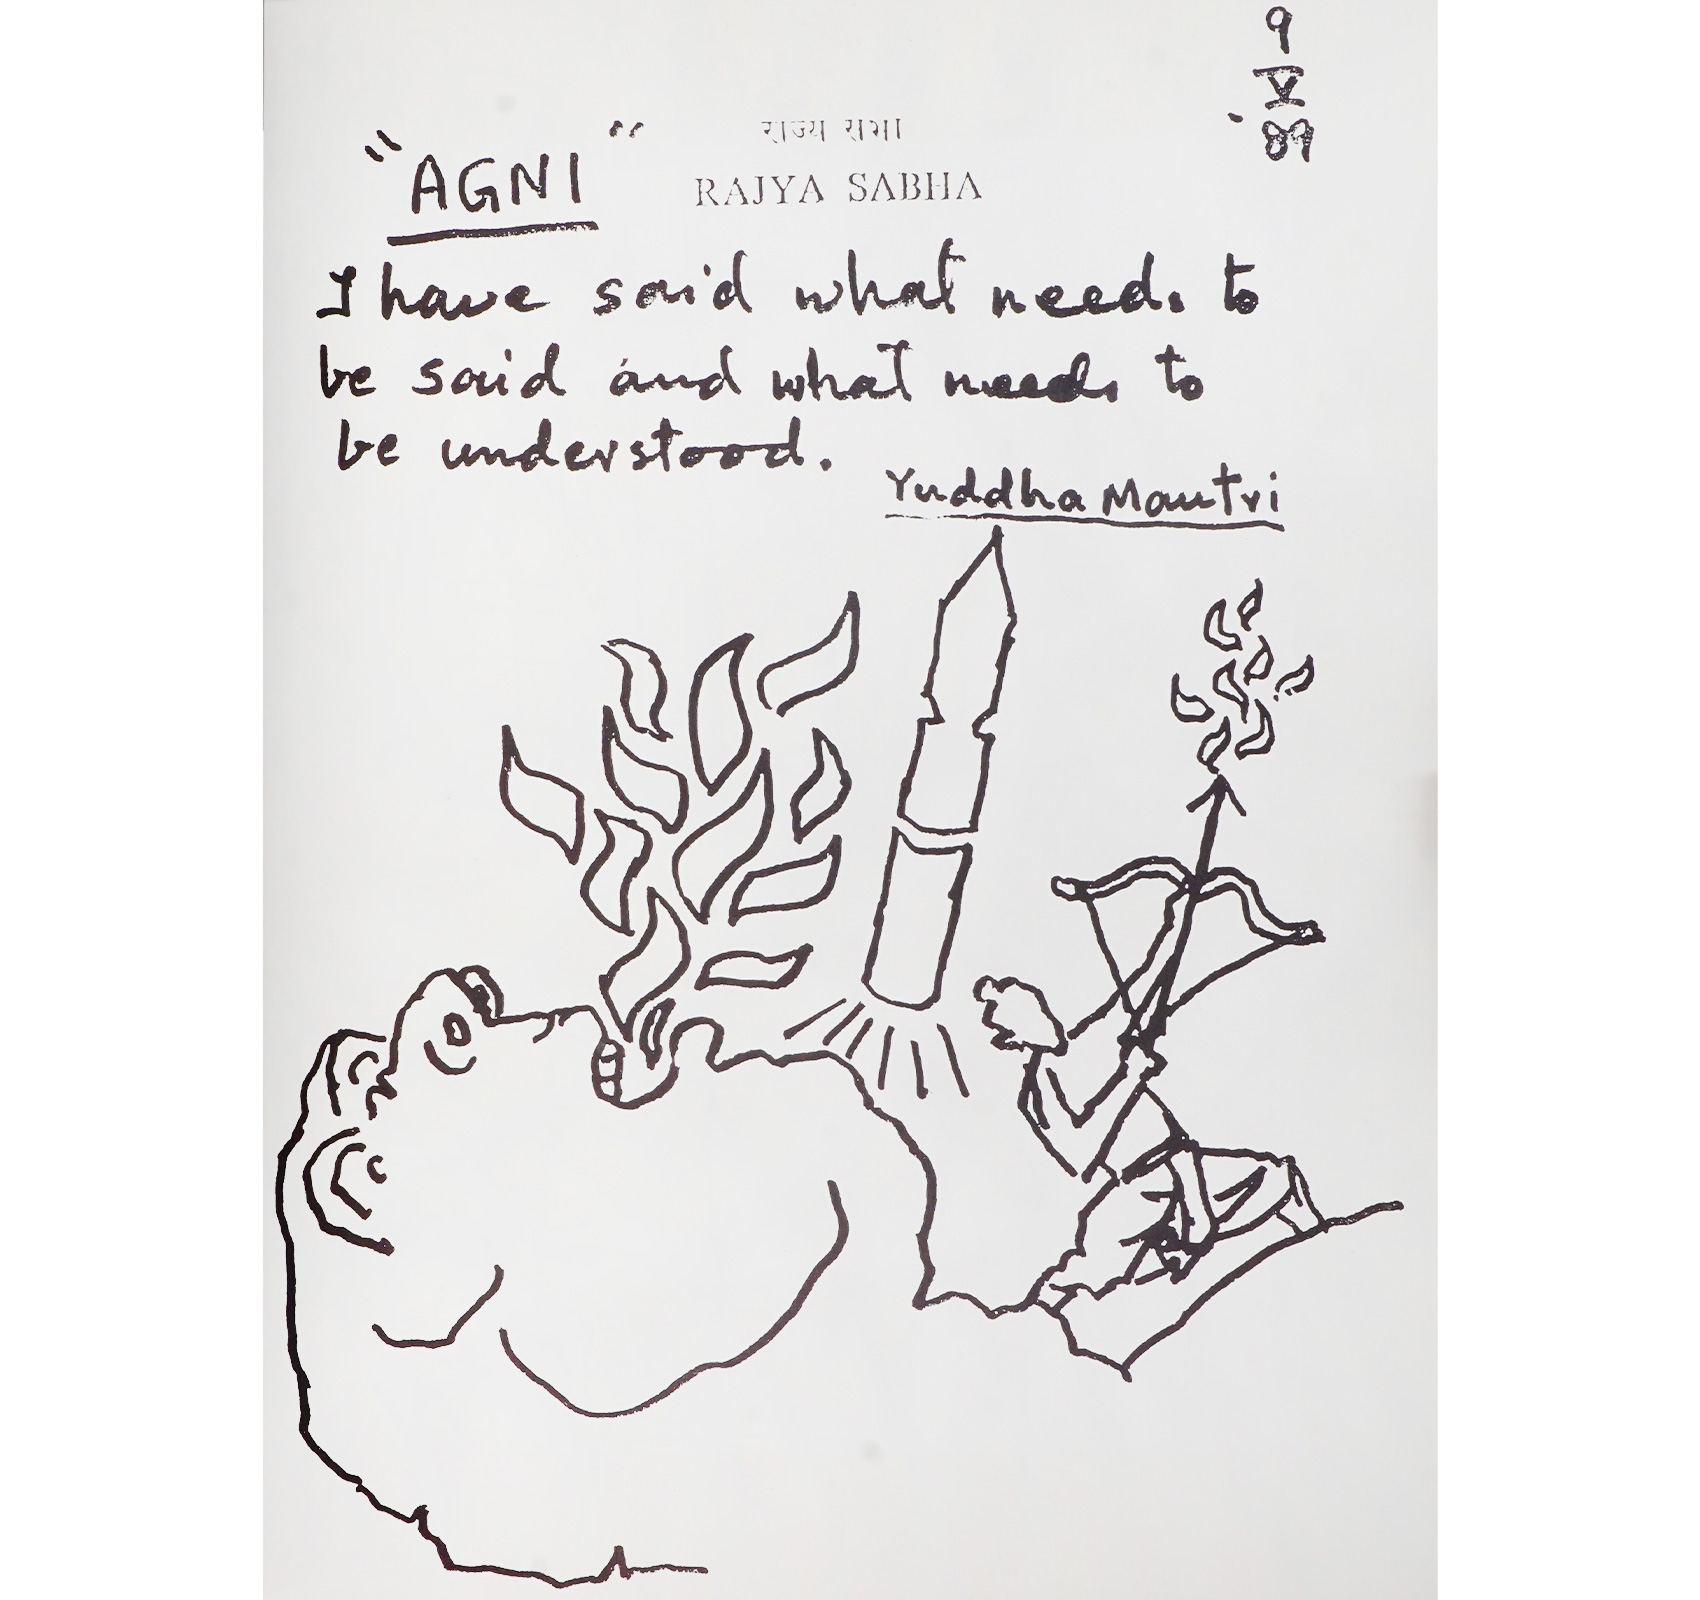 9
V
89
"AGNI"
राज्य सभा
RAJYA SABHA
I have said what needs to
be said and what needs to
be understood.
Yuddha Mantri